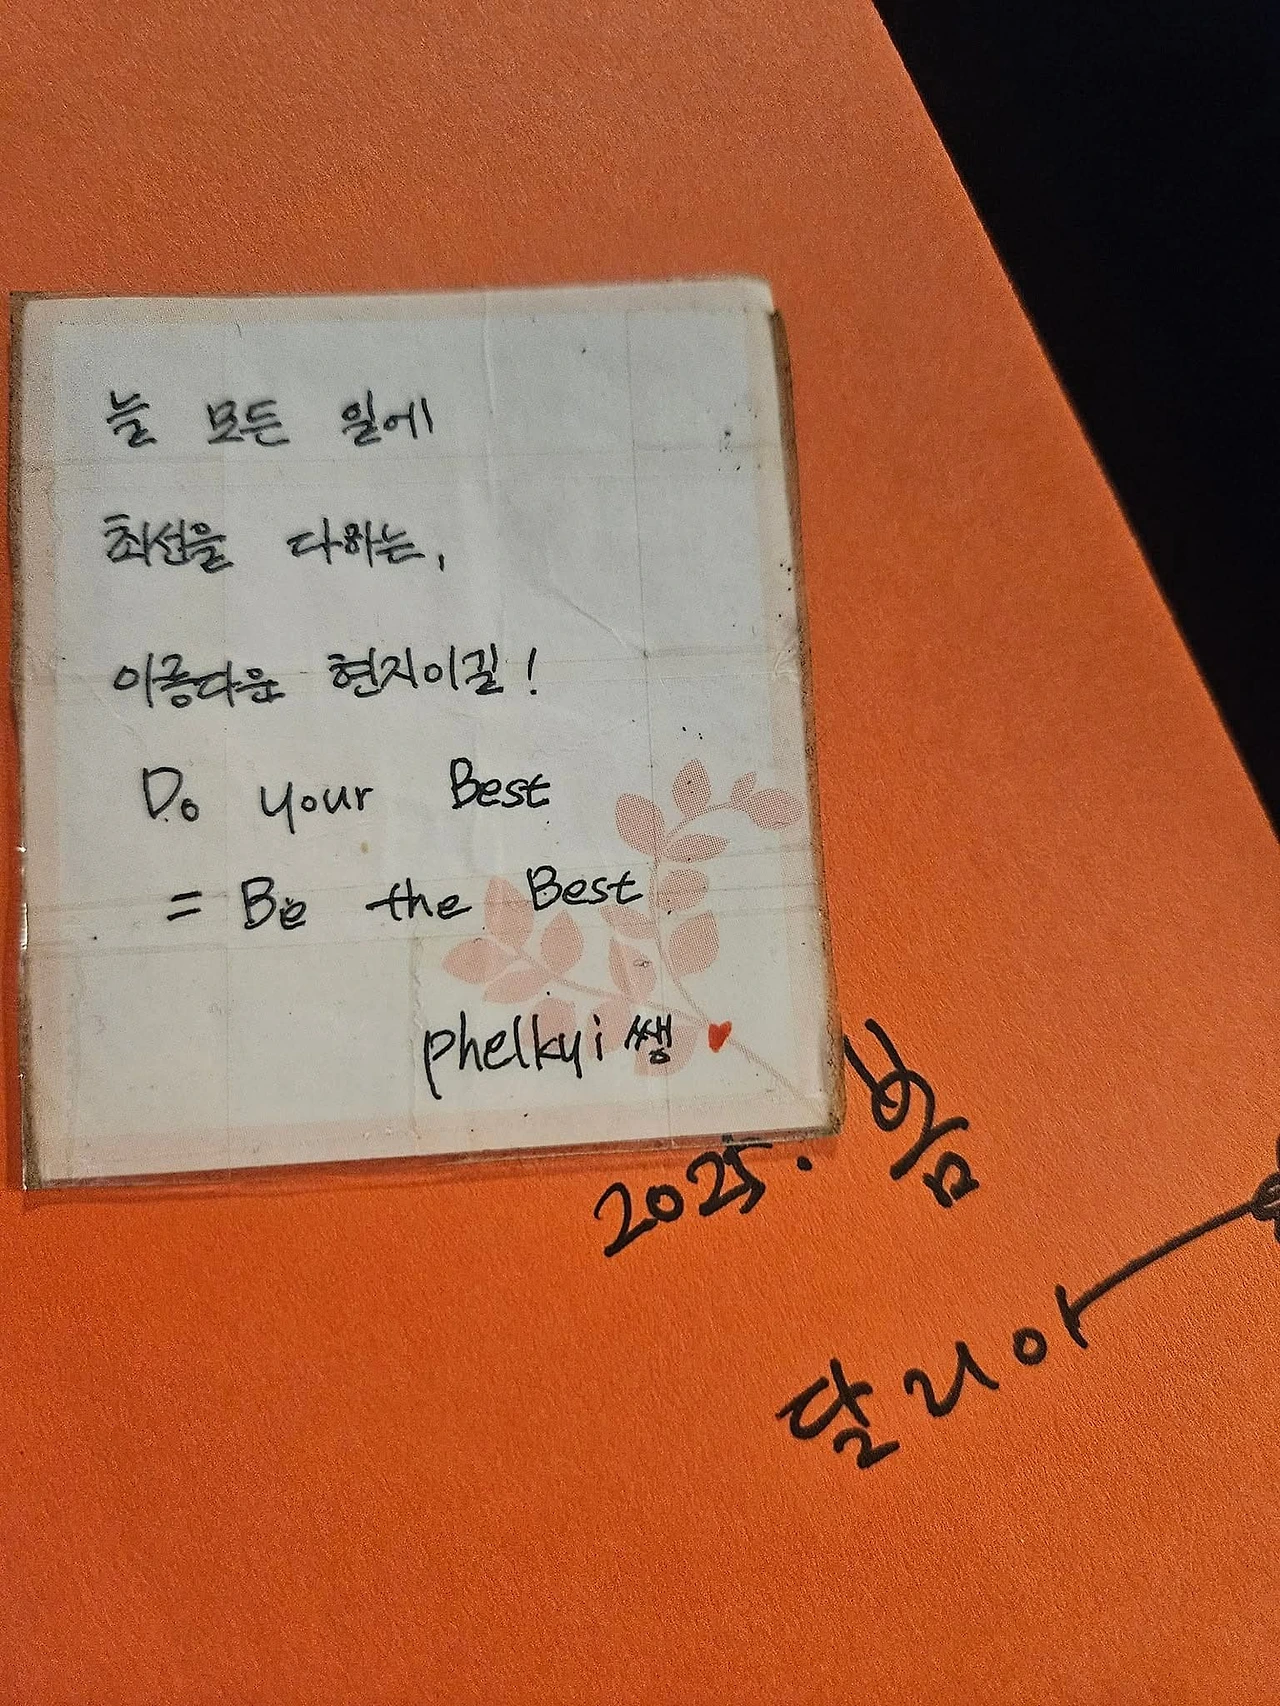 늘 모든 일에
최선을 다하는,
아름다운 현지이길!
Do your Best
= Be the Best
phelkyi 쌤
2025. 봄
달리아